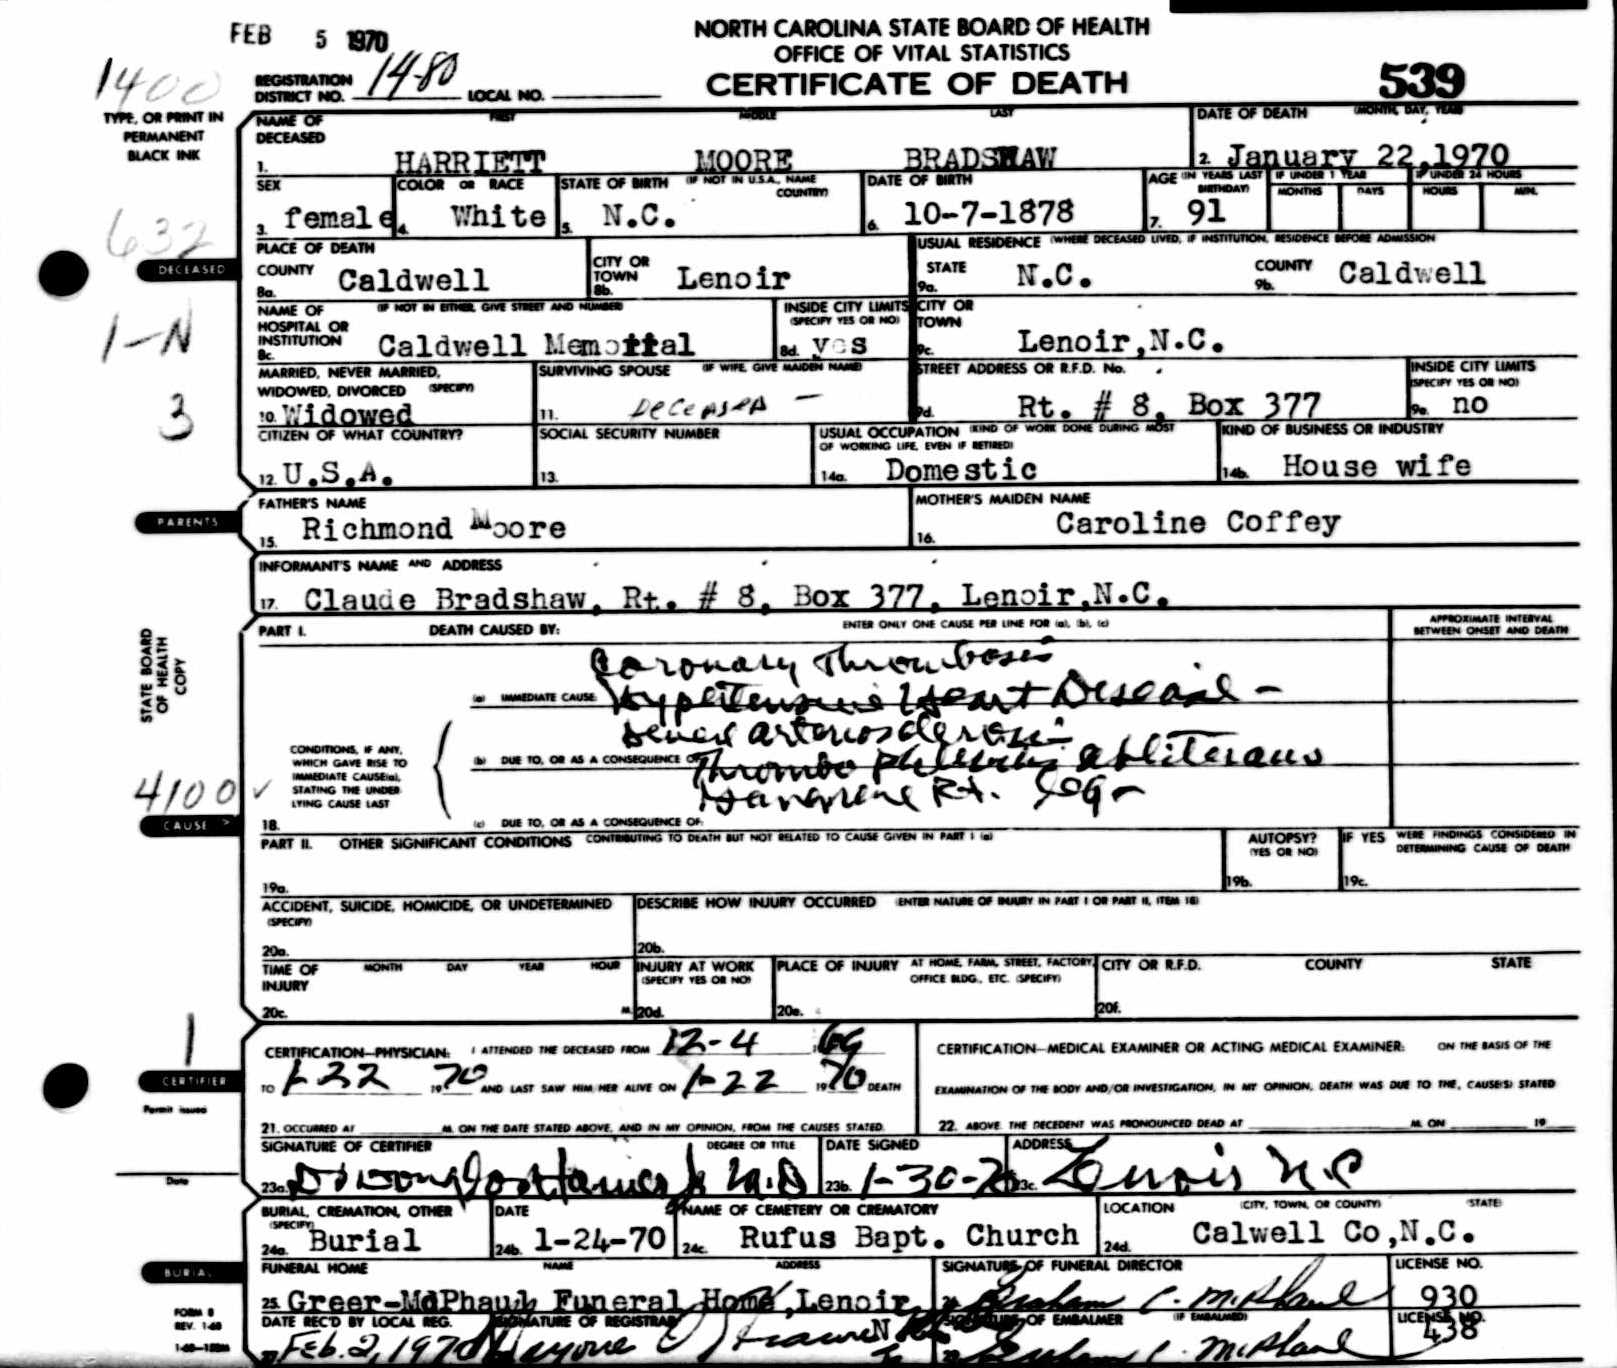 FEB 5 1970
NORTH CAROLINA STATE BOARD OF HEALTH
OFFICE OF VITAL STATISTICS
CERTIFICATE OF DEATH
539
1400
REGISTRATION DISTRICT NO. 14-80 LOCAL NO.
TYPE, OR PRINT IN
PERMANENT
BLACK INK
NAME OF DECEASED FIRST MIDDLE LAST
1. HARRIETT MOORE BRADSHAW
DATE OF DEATH (MONTH, DAY, YEAR)
2. January 22,1970
SEX
3. female
COLOR OR RACE
4. White
STATE OF BIRTH (IF NOT IN U.S.A., NAME COUNTRY)
5. N.C.
DATE OF BIRTH
6. 10-7-1878
AGE (IN YEARS LAST BIRTHDAY)
7. 91
IF UNDER 1 YEAR
MONTHS DAYS
IF UNDER 24 HOURS
HOURS MIN.
632
DECEASED
PLACE OF DEATH
COUNTY
8a. Caldwell
CITY OR TOWN
8b. Lenoir
USUAL RESIDENCE (WHERE DECEASED LIVED, IF INSTITUTION, RESIDENCE BEFORE ADMISSION
STATE
9a. N.C.
COUNTY
9b. Caldwell
1-N
NAME OF HOSPITAL OR INSTITUTION (IF NOT IN EITHER, GIVE STREET AND NUMBER)
8c. Caldwell Memorial
INSIDE CITY LIMITS (SPECIFY YES OR NO)
8d. yes
CITY OR TOWN
9c. Lenoir,N.C.
3
MARRIED, NEVER MARRIED, WIDOWED, DIVORCED (SPECIFY)
10. Widowed
SURVIVING SPOUSE (IF WIFE, GIVE MAIDEN NAME)
11. DECEASED -
STREET ADDRESS OR R.F.D. No.
9d. Rt. # 8, Box 377
INSIDE CITY LIMITS (SPECIFY YES OR NO)
9e. no
CITIZEN OF WHAT COUNTRY?
12. U.S.A.
SOCIAL SECURITY NUMBER
13.
USUAL OCCUPATION (KIND OF WORK DONE DURING MOST OF WORKING LIFE, EVEN IF RETIRED)
14a. Domestic
KIND OF BUSINESS OR INDUSTRY
14b. House wife
PARENTS
FATHER'S NAME
15. Richmond Moore
MOTHER'S MAIDEN NAME
16. Caroline Coffey
INFORMANT'S NAME AND ADDRESS
17. Claude Bradshaw, Rt. # 8, Box 377, Lenoir,N.C.
STATE BOARD
OF HEALTH
COPY
PART I. DEATH CAUSED BY: ENTER ONLY ONE CAUSE PER LINE FOR (a), (b), (c)
APPROXIMATE INTERVAL
BETWEEN ONSET AND DEATH
Coronary Thrombosis
(a) IMMEDIATE CAUSE: Hypertensive Heart Disease -
Severe arteriosclerosis
(b) DUE TO, OR AS A CONSEQUENCE OF: Thrombo Phlebitis obliterans
Gangrene Rt. leg -
(c) DUE TO, OR AS A CONSEQUENCE OF:
CONDITIONS, IF ANY,
WHICH GAVE RISE TO
IMMEDIATE CAUSE(a),
STATING THE UNDER
LYING CAUSE LAST
4100 ✓
CAUSE >
18.
PART II. OTHER SIGNIFICANT CONDITIONS CONTRIBUTING TO DEATH BUT NOT RELATED TO CAUSE GIVEN IN PART I (a)
19a.
AUTOPSY? (YES OR NO)
19b.
IF YES WERE FINDINGS CONSIDERED IN DETERMINING CAUSE OF DEATH
19c.
ACCIDENT, SUICIDE, HOMICIDE, OR UNDETERMINED (SPECIFY)
20a.
DESCRIBE HOW INJURY OCCURRED (ENTER NATURE OF INJURY IN PART I OR PART II, ITEM 18)
20b.
TIME OF INJURY MONTH DAY YEAR HOUR
20c. M.
INJURY AT WORK (SPECIFY YES OR NO)
20d.
PLACE OF INJURY AT HOME, FARM, STREET, FACTORY, OFFICE BLDG., ETC. (SPECIFY)
20e.
CITY OR R.F.D. COUNTY STATE
20f.
1
CERTIFIER
Permit issued
Date
CERTIFICATION—PHYSICIAN: I ATTENDED THE DECEASED FROM 12-4 1969
TO 1-22 1970 AND LAST SAW HIM/HER ALIVE ON 1-22 1970 DEATH
21. OCCURRED AT M. ON THE DATE STATED ABOVE, AND IN MY OPINION, FROM THE CAUSES STATED.
CERTIFICATION—MEDICAL EXAMINER OR ACTING MEDICAL EXAMINER: ON THE BASIS OF THE
EXAMINATION OF THE BODY AND/OR INVESTIGATION, IN MY OPINION, DEATH WAS DUE TO THE, CAUSE(S) STATED
22. ABOVE. THE DECEDENT WAS PRONOUNCED DEAD AT M. ON 19
SIGNATURE OF CERTIFIER DEGREE OR TITLE
23a. Hamer Jr M.D
DATE SIGNED
23b. 1-30-70
ADDRESS
23c. Lenoir N.C
BURIAL, CREMATION, OTHER (SPECIFY)
24a. Burial
DATE
24b. 1-24-70
NAME OF CEMETERY OR CREMATORY
24c. Rufus Bapt. Church
LOCATION (CITY, TOWN, OR COUNTY) (STATE)
24d. Calwell Co,N.C.
BURIAL
FUNERAL HOME NAME ADDRESS
25. Greer-McPhaul Funeral Home,Lenoir
N
SIGNATURE OF FUNERAL DIRECTOR
Graham C. McPhaul
LICENSE NO.
930
FORM 8
REV. 1-68
DATE REC'D BY LOCAL REG.
Feb. 2, 1970
SIGNATURE OF REGISTRAR
SIGNATURE OF EMBALMER (IF EMBALMED)
Graham C. McPhaul
LICENSE NO.
438